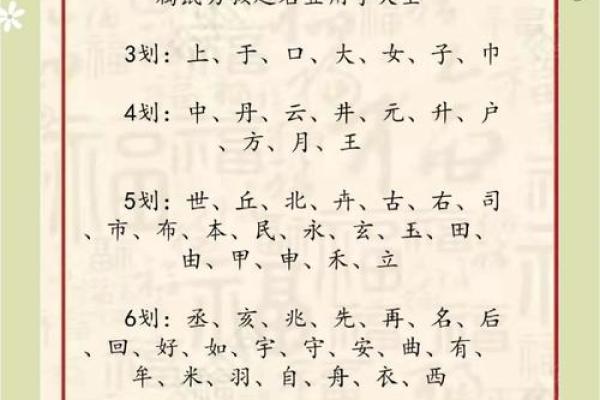 3划：上、于、口、大、女、子、巾
4划：中、丹、云、井、元、升、户
、方、月、王
5划：世、丘、北、卉、古、右、司
、市、布、本、民、永、玄、玉、田、
由、甲、申、禾、立
6划：丞、亥、兆、先、再、名、后
、回、好、如、宇、守、安、曲、有、
牟、米、羽、自、舟、衣、西